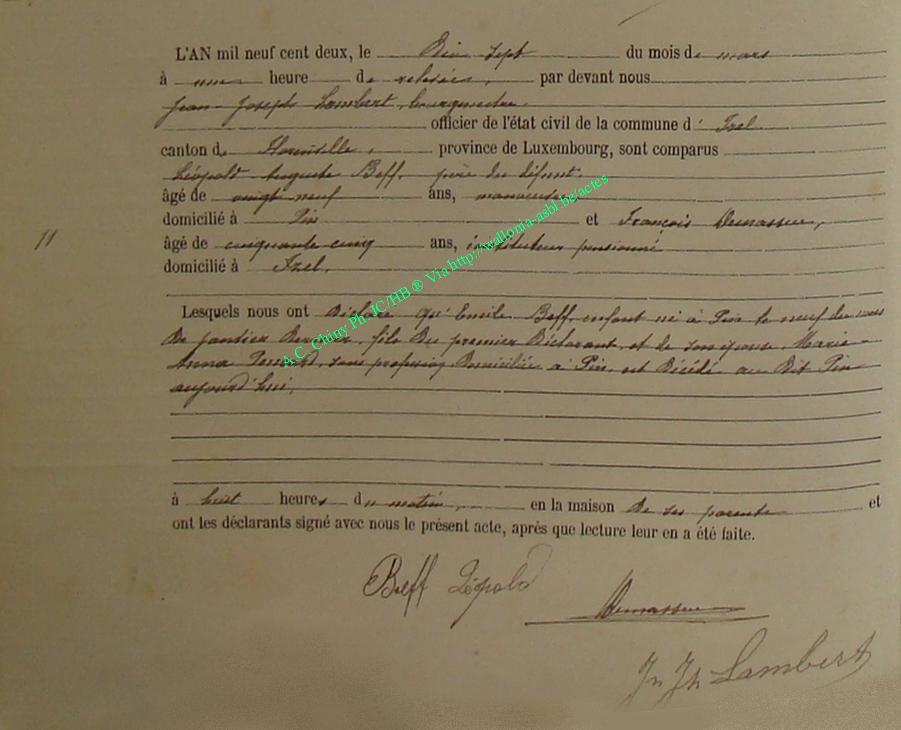 L'AN mil neuf cent deux, le Dix sept du mois de mars
à une heure de relevée, par devant nous
Jean-Joseph Lambert, bourgmestre
officier de l'état civil de la commune d' Izel
canton de Florenville, province de Luxembourg, sont comparus
Léopold Auguste Beff, père du défunt,
âgé de vingt neuf ans, manoeuvre
domicilié à Pin et François Demasseu,
11
âgé de cinquante cinq ans, instituteur pensionné
domicilié à Izel.
Lesquels nous ont Déclaré qu'Emile Beff, enfant né à Pin le neuf du mois
De janvier Dernier, fils Du premier Déclarant, et de son épouse Marie-
Anna sans profession Domiciliée à Pin, est Décédé au Dit Pin
aujourd'hui,
à huit heures du matin, en la maison De ses parents et
ont les déclarants signé avec nous le présent acte, après que lecture leur en a été faite.
Beff Léopold
Demasseu
Jn Jh Lambert
A.C. Chiny Ph. JC/HB ® Via http://wallonia-asbl.be/actes